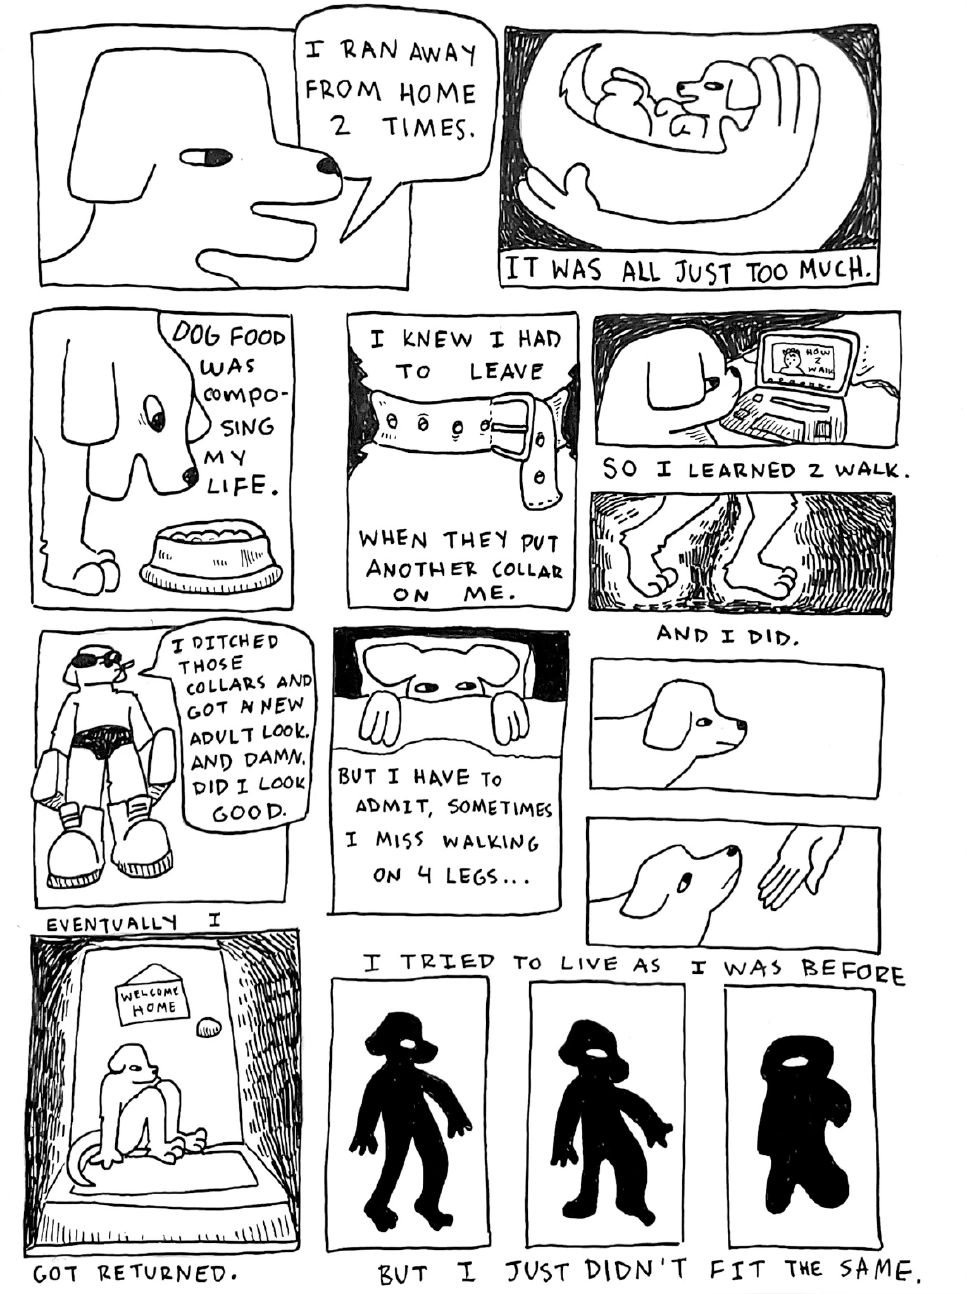 I RAN AWAY
FROM HOME
2 TIMES.
IT WAS ALL JUST TOO MUCH.
DOG FOOD
WAS
COMPO-
SING
MY
LIFE.
I KNEW I HAD
TO LEAVE
WHEN THEY PUT
ANOTHER COLLAR
ON ME.
HOW
2
WALK
SO I LEARNED 2 WALK.
AND I DID.
I DITCHED
THOSE
COLLARS AND
GOT A NEW
ADULT LOOK.
AND DAMN,
DID I LOOK
GOOD.
BUT I HAVE TO
ADMIT, SOMETIMES
I MISS WALKING
ON 4 LEGS...
EVENTUALLY I
WELCOME
HOME
GOT RETURNED.
I TRIED TO LIVE AS I WAS BEFORE
BUT I JUST DIDN'T FIT THE SAME.